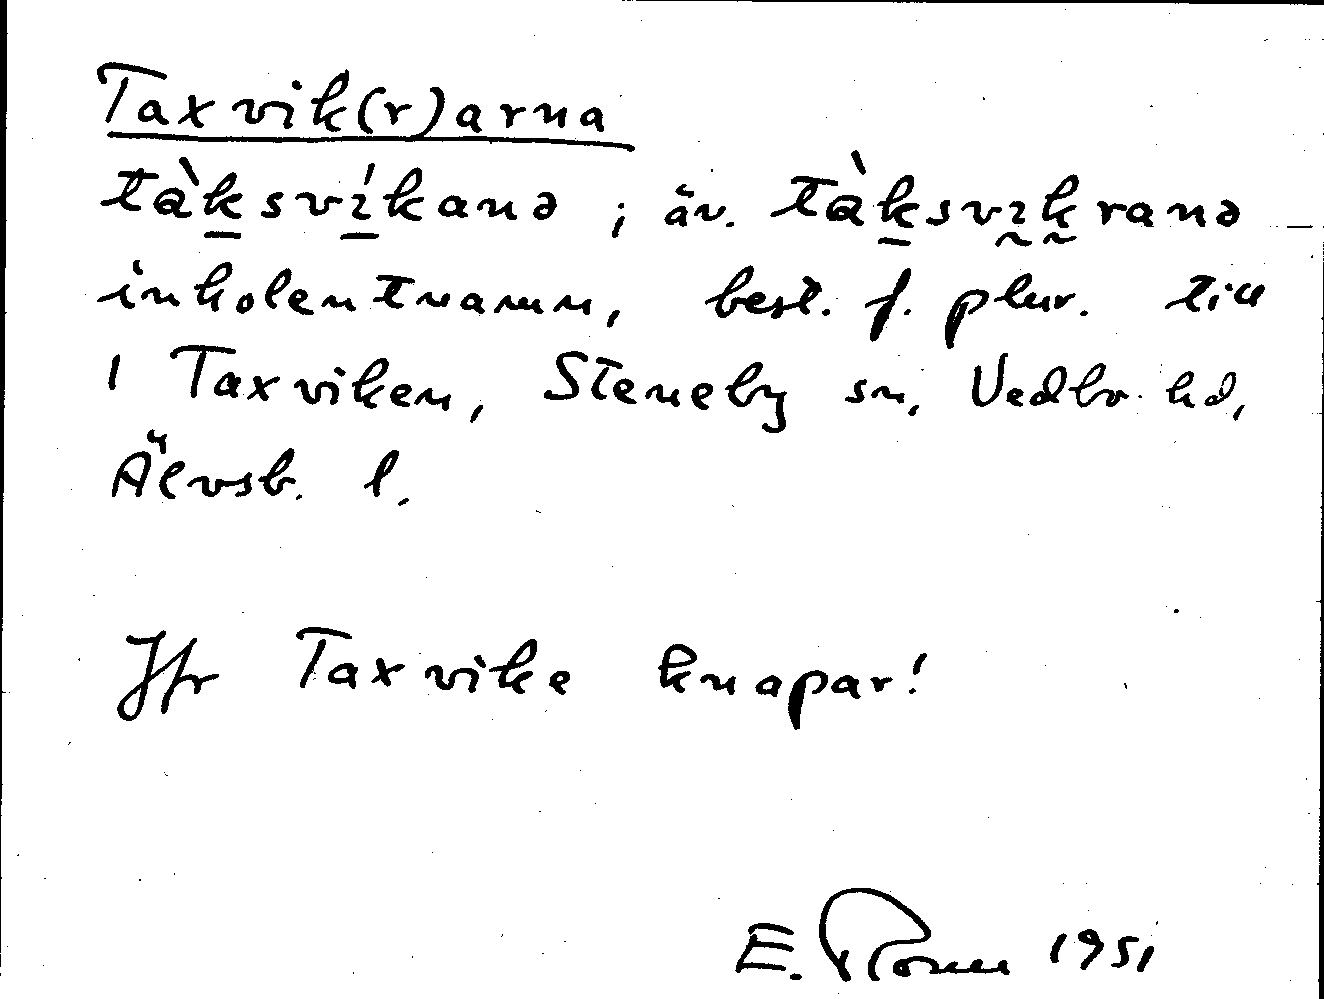 Taxvik(r)arna
tàksvíkanə ; äv. tàksvıkranə
inkolentnamn, best. f. plur. till
1 Taxviken, Steneby sn, Vedbo hd,
Älvsb. l.
Jfr Taxvike knapar!
E. 1951